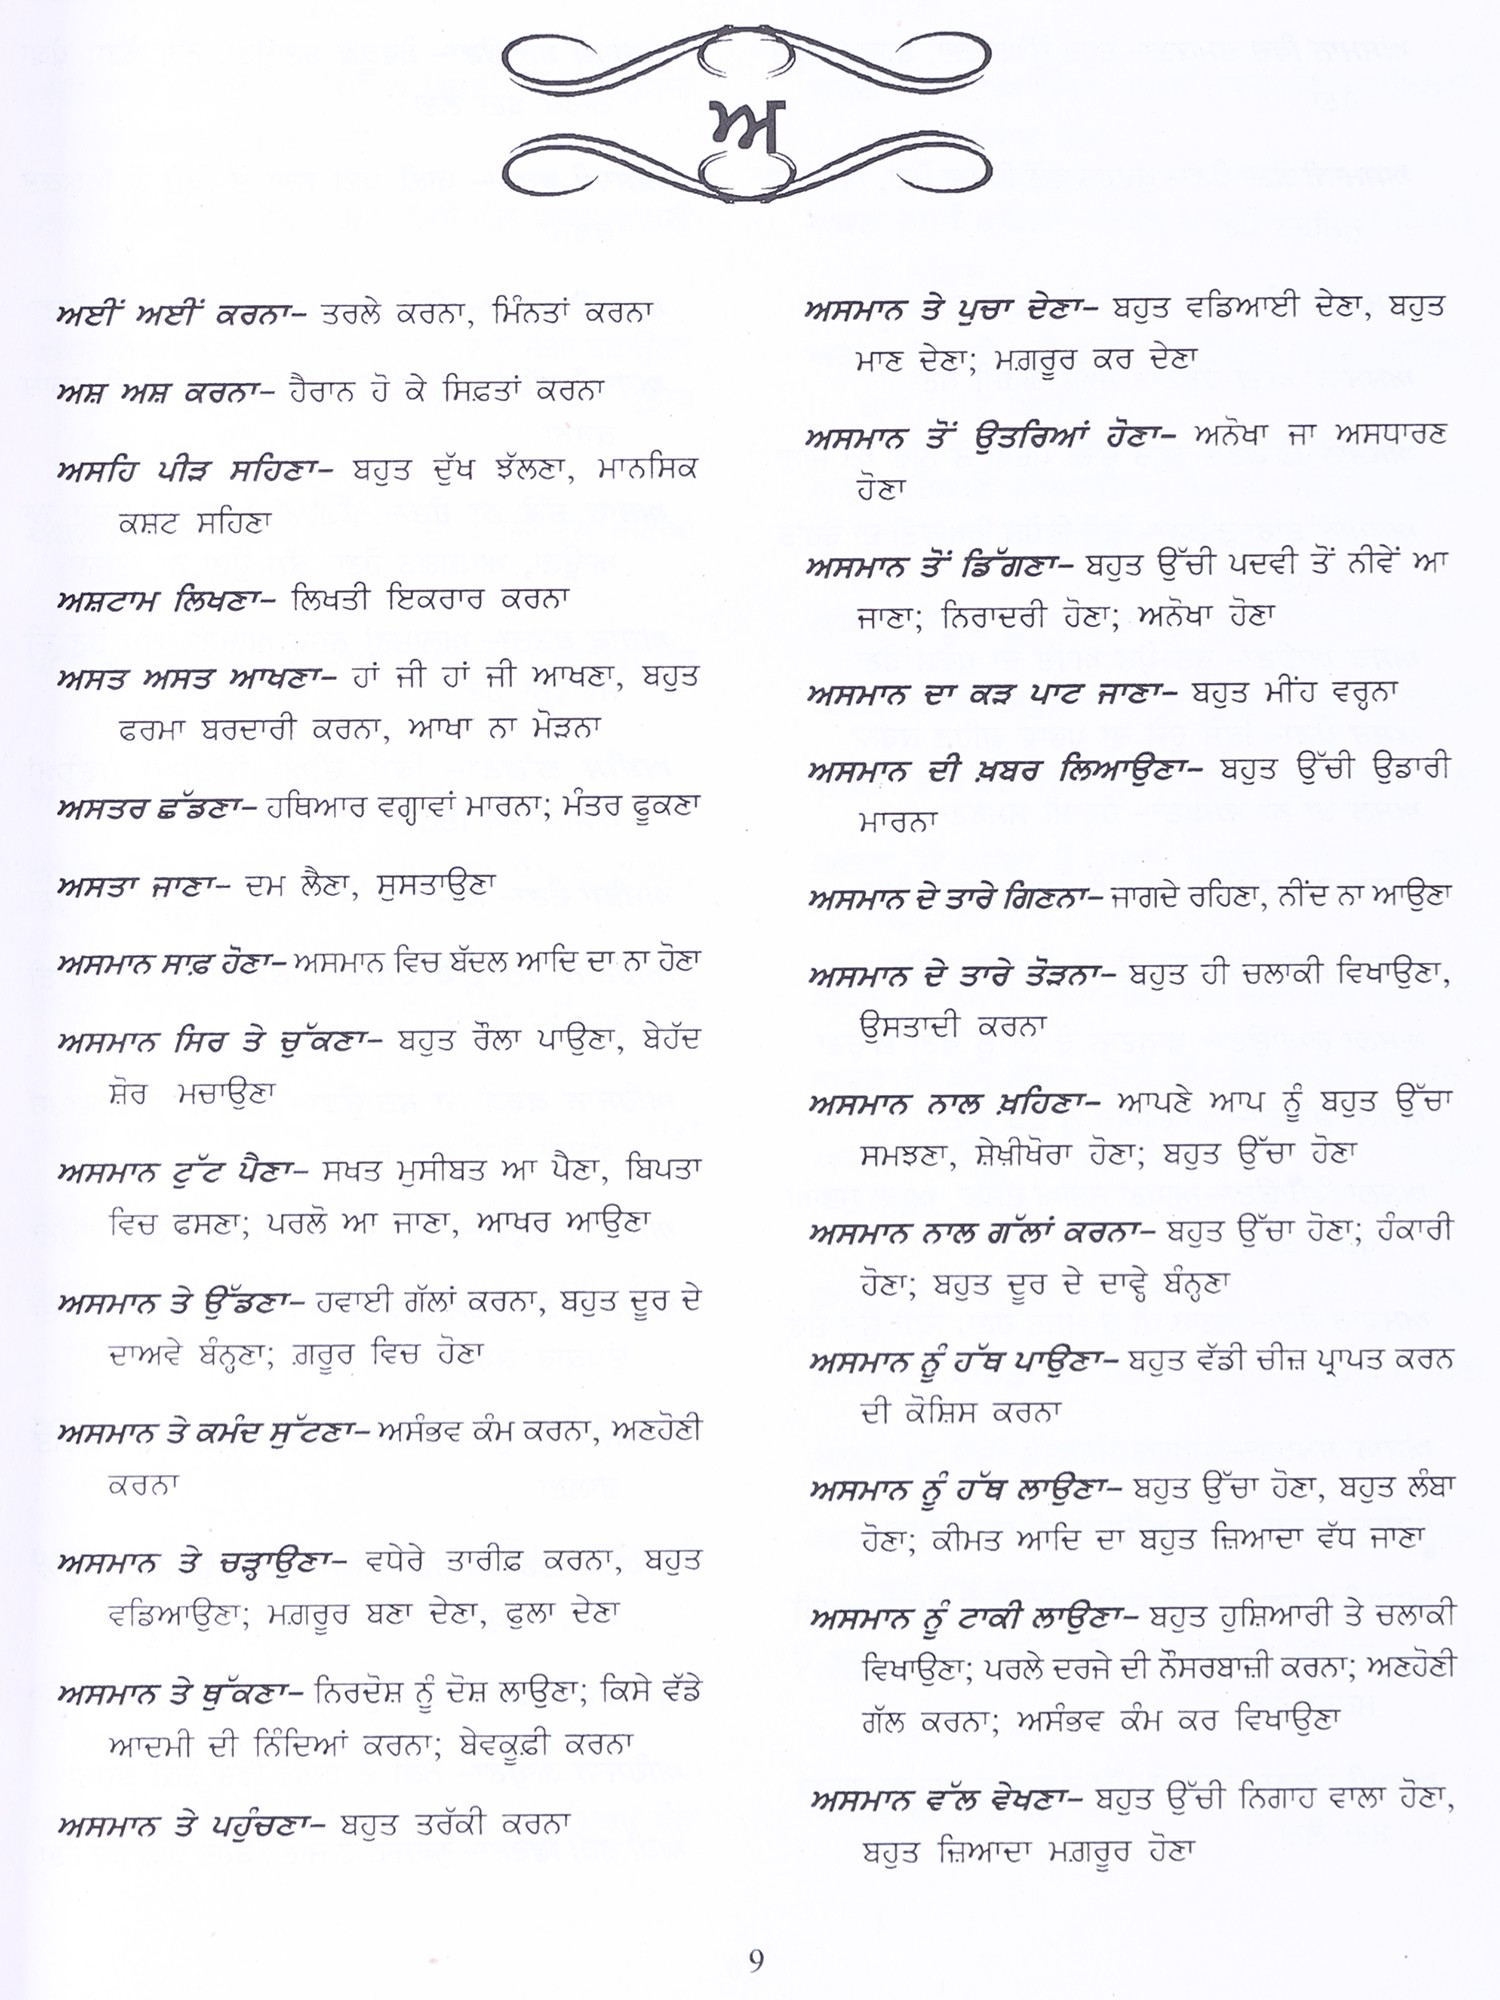 ਅ
ਅਈਂ ਅਈਂ ਕਰਨਾ– ਤਰਲੇ ਕਰਨਾ, ਮਿੰਨਤਾਂ ਕਰਨਾ
ਅਸ਼ ਅਸ਼ ਕਰਨਾ– ਹੈਰਾਨ ਹੋ ਕੇ ਸਿਫ਼ਤਾਂ ਕਰਨਾ
ਅਸਹਿ ਪੀੜ ਸਹਿਣਾ– ਬਹੁਤ ਦੁੱਖ ਝੱਲਣਾ, ਮਾਨਸਿਕ
ਕਸ਼ਟ ਸਹਿਣਾ
ਅਸ਼ਟਾਮ ਲਿਖਣਾ– ਲਿਖਤੀ ਇਕਰਾਰ ਕਰਨਾ
ਅਸਤ ਅਸਤ ਆਖਣਾ– ਹਾਂ ਜੀ ਹਾਂ ਜੀ ਆਖਣਾ, ਬਹੁਤ
ਫਰਮਾ ਬਰਦਾਰੀ ਕਰਨਾ, ਆਖਾ ਨਾ ਮੋੜਨਾ
ਅਸਤਰ ਛੱਡਣਾ– ਹਥਿਆਰ ਵਗ੍ਹਾਵਾਂ ਮਾਰਨਾ; ਮੰਤਰ ਫੂਕਣਾ
ਅਸਤਾ ਜਾਣਾ– ਦਮ ਲੈਣਾ, ਸੁਸਤਾਉਣਾ
ਅਸਮਾਨ ਸਾਫ਼ ਹੋਣਾ– ਅਸਮਾਨ ਵਿਚ ਬੱਦਲ ਆਦਿ ਦਾ ਨਾ ਹੋਣਾ
ਅਸਮਾਨ ਸਿਰ ਤੇ ਚੁੱਕਣਾ– ਬਹੁਤ ਰੌਲਾ ਪਾਉਣਾ, ਬੇਹੱਦ
ਸ਼ੋਰ ਮਚਾਉਣਾ
ਅਸਮਾਨ ਟੁੱਟ ਪੈਣਾ– ਸਖਤ ਮੁਸੀਬਤ ਆ ਪੈਣਾ, ਬਿਪਤਾ
ਵਿਚ ਫਸਣਾ; ਪਰਲੋ ਆ ਜਾਣਾ, ਆਖਰ ਆਉਣਾ
ਅਸਮਾਨ ਤੇ ਉੱਡਣਾ– ਹਵਾਈ ਗੱਲਾਂ ਕਰਨਾ, ਬਹੁਤ ਦੂਰ ਦੇ
ਦਾਅਵੇ ਬੰਨ੍ਹਣਾ; ਗ਼ਰੂਰ ਵਿਚ ਹੋਣਾ
ਅਸਮਾਨ ਤੇ ਕਮੰਦ ਸੁੱਟਣਾ– ਅਸੰਭਵ ਕੰਮ ਕਰਨਾ, ਅਣਹੋਣੀ
ਕਰਨਾ
ਅਸਮਾਨ ਤੇ ਚੜ੍ਹਾਉਣਾ– ਵਧੇਰੇ ਤਾਰੀਫ਼ ਕਰਨਾ, ਬਹੁਤ
ਵਡਿਆਉਣਾ; ਮਗ਼ਰੂਰ ਬਣਾ ਦੇਣਾ, ਫੁਲਾ ਦੇਣਾ
ਅਸਮਾਨ ਤੇ ਥੁੱਕਣਾ– ਨਿਰਦੋਸ਼ ਨੂੰ ਦੋਸ਼ ਲਾਉਣਾ; ਕਿਸੇ ਵੱਡੇ
ਆਦਮੀ ਦੀ ਨਿੰਦਿਆਂ ਕਰਨਾ; ਬੇਵਕੂਫ਼ੀ ਕਰਨਾ
ਅਸਮਾਨ ਤੇ ਪਹੁੰਚਣਾ– ਬਹੁਤ ਤਰੱਕੀ ਕਰਨਾ
ਅਸਮਾਨ ਤੇ ਪੁਚਾ ਦੇਣਾ– ਬਹੁਤ ਵਡਿਆਈ ਦੇਣਾ, ਬਹੁਤ
ਮਾਣ ਦੇਣਾ; ਮਗ਼ਰੂਰ ਕਰ ਦੇਣਾ
ਅਸਮਾਨ ਤੋਂ ਉਤਰਿਆਂ ਹੋਣਾ– ਅਨੋਖਾ ਜਾ ਅਸਧਾਰਣ
ਹੋਣਾ
ਅਸਮਾਨ ਤੋਂ ਡਿੱਗਣਾ– ਬਹੁਤ ਉੱਚੀ ਪਦਵੀ ਤੋਂ ਨੀਵੇਂ ਆ
ਜਾਣਾ; ਨਿਰਾਦਰੀ ਹੋਣਾ; ਅਨੋਖਾ ਹੋਣਾ
ਅਸਮਾਨ ਦਾ ਕੜ ਪਾਟ ਜਾਣਾ– ਬਹੁਤ ਮੀਂਹ ਵਰ੍ਹਨਾ
ਅਸਮਾਨ ਦੀ ਖ਼ਬਰ ਲਿਆਉਣਾ– ਬਹੁਤ ਉੱਚੀ ਉਡਾਰੀ
ਮਾਰਨਾ
ਅਸਮਾਨ ਦੇ ਤਾਰੇ ਗਿਣਨਾ– ਜਾਗਦੇ ਰਹਿਣਾ, ਨੀਂਦ ਨਾ ਆਉਣਾ
ਅਸਮਾਨ ਦੇ ਤਾਰੇ ਤੋੜਨਾ– ਬਹੁਤ ਹੀ ਚਲਾਕੀ ਵਿਖਾਉਣਾ,
ਉਸਤਾਦੀ ਕਰਨਾ
ਅਸਮਾਨ ਨਾਲ ਖ਼ਹਿਣਾ– ਆਪਣੇ ਆਪ ਨੂੰ ਬਹੁਤ ਉੱਚਾ
ਸਮਝਣਾ, ਸ਼ੇਖ਼ੀਖੋਰਾ ਹੋਣਾ; ਬਹੁਤ ਉੱਚਾ ਹੋਣਾ
ਅਸਮਾਨ ਨਾਲ ਗੱਲਾਂ ਕਰਨਾ– ਬਹੁਤ ਉੱਚਾ ਹੋਣਾ; ਹੰਕਾਰੀ
ਹੋਣਾ; ਬਹੁਤ ਦੂਰ ਦੇ ਦਾਵ੍ਹੇ ਬੰਨ੍ਹਣਾ
ਅਸਮਾਨ ਨੂੰ ਹੱਥ ਪਾਉਣਾ– ਬਹੁਤ ਵੱਡੀ ਚੀਜ਼ ਪ੍ਰਾਪਤ ਕਰਨ
ਦੀ ਕੋਸ਼ਿਸ ਕਰਨਾ
ਅਸਮਾਨ ਨੂੰ ਹੱਥ ਲਾਉਣਾ– ਬਹੁਤ ਉੱਚਾ ਹੋਣਾ, ਬਹੁਤ ਲੰਬਾ
ਹੋਣਾ; ਕੀਮਤ ਆਦਿ ਦਾ ਬਹੁਤ ਜ਼ਿਆਦਾ ਵੱਧ ਜਾਣਾ
ਅਸਮਾਨ ਨੂੰ ਟਾਕੀ ਲਾਉਣਾ– ਬਹੁਤ ਹੁਸ਼ਿਆਰੀ ਤੇ ਚਲਾਕੀ
ਵਿਖਾਉਣਾ; ਪਰਲੇ ਦਰਜੇ ਦੀ ਨੌਸਰਬਾਜ਼ੀ ਕਰਨਾ; ਅਣਹੋਣੀ
ਗੱਲ ਕਰਨਾ; ਅਸੰਭਵ ਕੰਮ ਕਰ ਵਿਖਾਉਣਾ
ਅਸਮਾਨ ਵੱਲ ਵੇਖਣਾ– ਬਹੁਤ ਉੱਚੀ ਨਿਗਾਹ ਵਾਲਾ ਹੋਣਾ,
ਬਹੁਤ ਜ਼ਿਆਦਾ ਮਗ਼ਰੂਰ ਹੋਣਾ
9